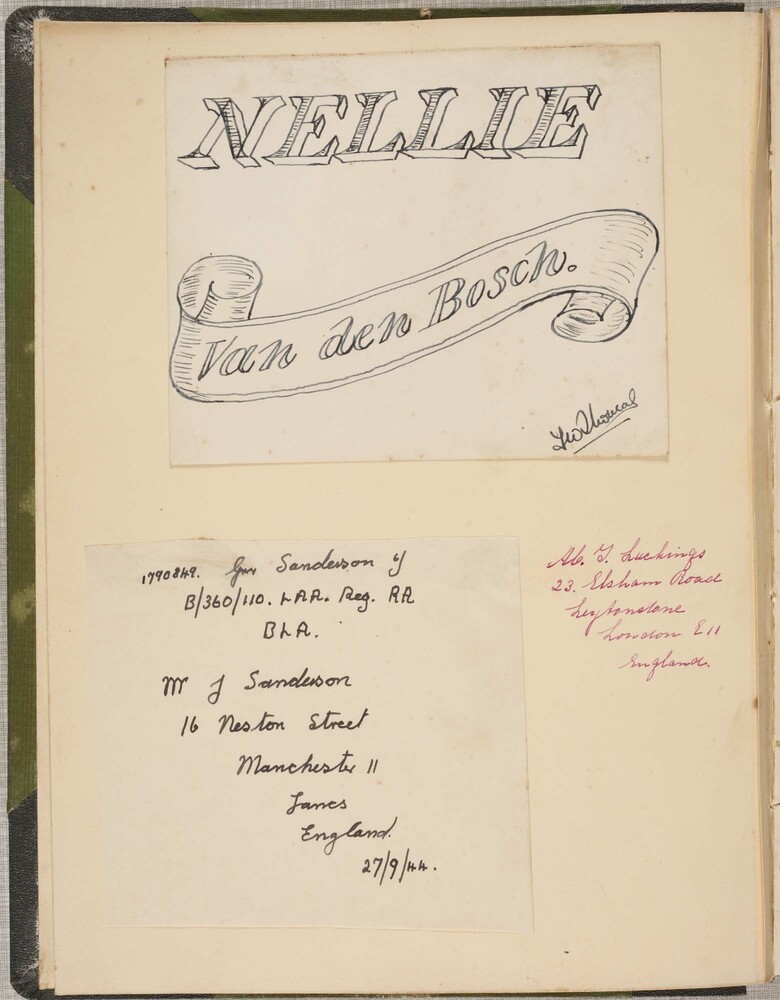 NELLIE
Van den Bosch.
Thomas
1790849. Gnr Sanderson J
B/360/110. LAA. Reg. RA
BLA.
Mr J Sanderson
16 Neston Street
Manchester 11
Lancs
England.
27/9/44.
Luckings
23. Elsham Road
Leytonstone
London E11
England.